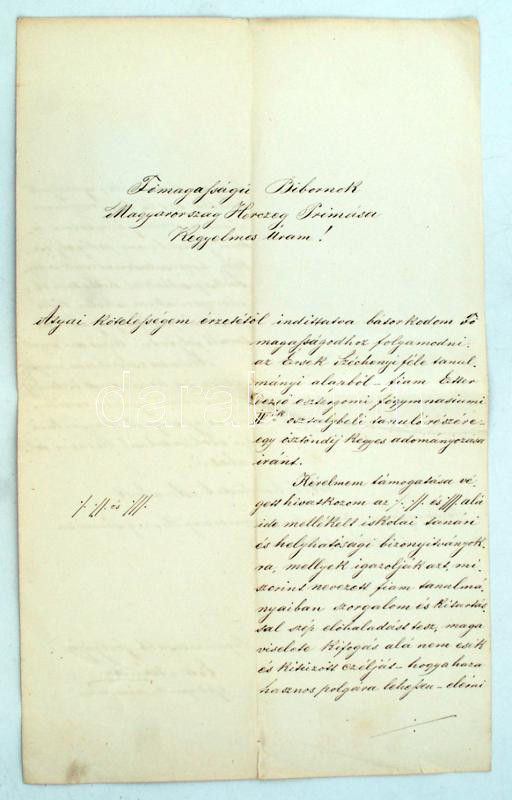 Főmagasságú Bibornok
Magyarország Herczeg Primása
Kegyelmes Úram!
Atyai kötelességem érzetétől indíttatva bátorkodom Fő
magasságodhoz folyamodni-
az Érsek Széchenyi féle tanul-
mányi alapból - fiam
Dezső esztergomi főgymnasiumi
IIik osztálybeli tanuló részére-
egy ösztöndíj kegyes adományozása
iránt.
Kérelmem támogatása vé-
gett hivatkozom az ·/. ·//. és ·///. alá
ide mellékelt iskolai tanári
és helyhatósági bizonyitványok-
ra, mellyek igazolják azt, mi-
szerint nevezett fiam tanulmá-
nyaiban szorgalom és kitartás-
sal szép előhaladást tesz, maga
viselete kifogás alá nem esik
és kitűzött czélját - hogy a haza
hasznos polgára lehessen - elérni
·/. ·//. és ·///.
darabanth